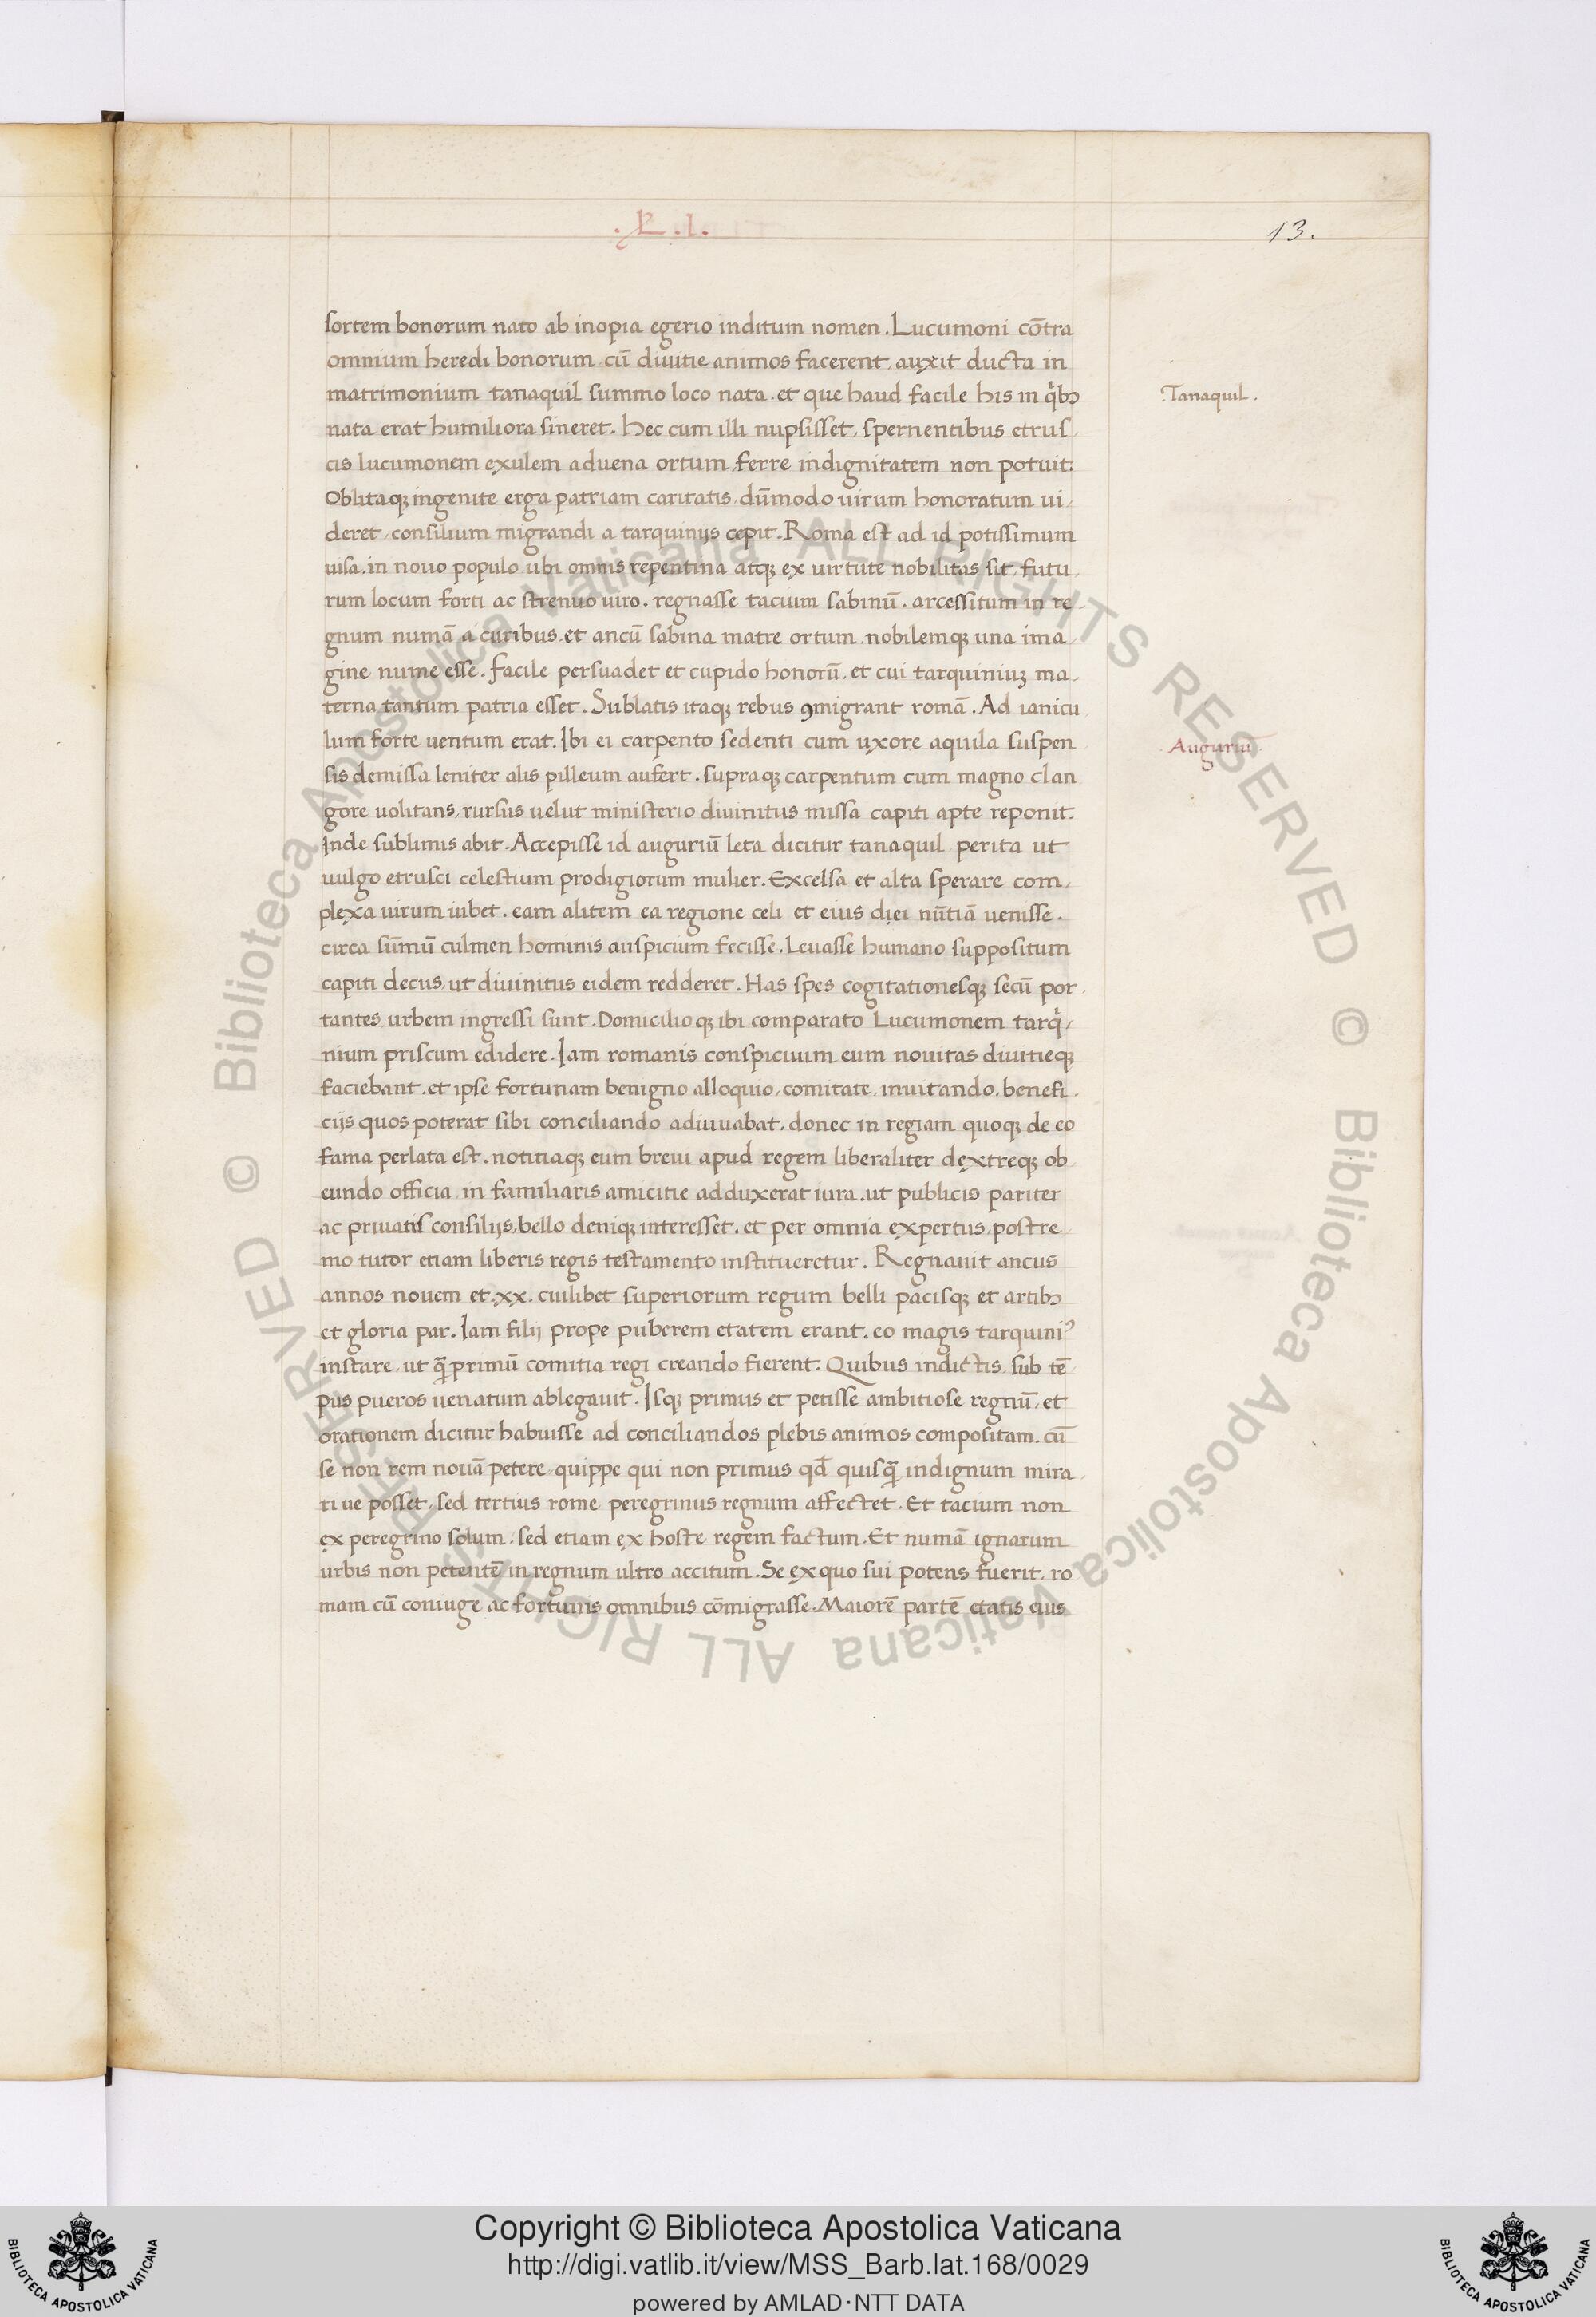 .L.I.
13.
sortem bonorum nato ab inopia egerio inditum nomen. Lucumoni cōtra
omnium heredi bonorum cū diuitie animos facerent, auxit ducta in
matrimonium tanaquil summo loco nata. et que haud facile his in qͥbꝫ
Tanaquil.
nata erat humiliora sineret. Hec cum illi nupsisset, spernentibus etrus
cis lucumonem exulem aduena ortum, ferre indignitatem non potuit.
Oblitaqꝫ ingenite erga patriam caritatis, dūmodo uirum honoratum ui
deret, consilium migrandi a tarquinijs cepit. Roma est ad id potissimum
uisa. in nouo populo ubi omnis repentina atqꝫ ex uirtute nobilitas sit, futu
rum locum forti ac strenuo uiro. regnasse tacium sabinū. arcessitum in re
gnum numā a curibus, et ancū sabina matre ortum, nobilemqꝫ una ima
gine nume esse. facile persuadet et cupido honorū, et cui tarquiniuꝫ ma
terna tantum patria esset. Sublatis itaqꝫ rebus ꝯmigrant romā. Ad ianicu
lum forte uentum erat. Ibi ei carpento sedenti cum uxore aquila suspen
Auguriū.
sis demissa leniter alis pilleum aufert. supraqꝫ carpentum cum magno clan
gore uolitans, rursus uelut ministerio diuinitus missa capiti apte reponit.
Inde sublimis abit. Accepisse id auguriū leta dicitur tanaquil perita ut
uulgo etrusci celestium prodigiorum mulier. Excelsa et alta sperare com
plexa uirum iubet. eam alitem ea regione celi et eius diei nūtiā uenisse.
circa sūmū culmen hominis auspicium fecisse. Leuasse humano suppositum
capiti decus, ut diuinitus eidem redderet. Has spes cogitationesqꝫ secū por
tantes urbem ingressi sunt. Domicilioqꝫ ibi comparato Lucumonem tarqͥ
nium priscum edidere. Iam romanis conspicuum eum nouitas diuitieqꝫ
faciebant. et ipse fortunam benigno alloquio, comitate, inuitando, benefi
cijs quos poterat sibi conciliando adiuuabat, donec in regiam quoqꝫ de eo
fama perlata est. notitiaqꝫ eum breui apud regem liberaliter dextreqꝫ ob
eundo officia in familiaris amicitie adduxerat iura. ut publicis pariter
ac priuatis consilijs, bello deniqꝫ interesset. et per omnia expertus, postre
mo tutor etiam liberis regis testamento institueretur. Regnauit ancus
annos nouem et .xx. cuilibet superiorum regum belli pacisqꝫ et artibꝫ
et gloria par. Iam filij prope puberem etatem erant. eo magis tarquiniꝰ
instare, ut qͣ̄ primū comitia regi creando fierent. Quibus indictis, sub tē
pus pueros uenatum ablegauit. Isqꝫ primus et petisse ambitiose regnū, et
orationem dicitur habuisse ad conciliandos plebis animos compositam. cū
se non rem nouā petere, quippe qui non primus qd̄ quisqͣ̄ indignum mira
ri ue posset, sed tertius rome peregrinus regnum affectet. Et tacium non
ex peregrino solum, sed etiam ex hoste regem factum. Et numā ignarum
urbis non petentē in regnum ultro accitum. Se ex quo sui potens fuerit, ro
mam cū coniuge ac fortunis omnibus cōmigrasse. Maiorē partē etatis eius
© Biblioteca Apostolica Vaticana ALL RIGHTS RESERVED © Biblioteca Apostolica Vaticana ALL RIGHTS RESERVED
Copyright © Biblioteca Apostolica Vaticana
http://digi.vatlib.it/view/MSS_Barb.lat.168/0029
powered by AMLAD·NTT DATA
BIBLIOTECA APOSTOLICA VATICANA
BIBLIOTECA APOSTOLICA VATICANA